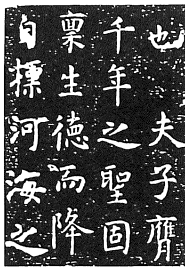 也夫子膺
千年之聖固
稟生德而降
自摽河海之